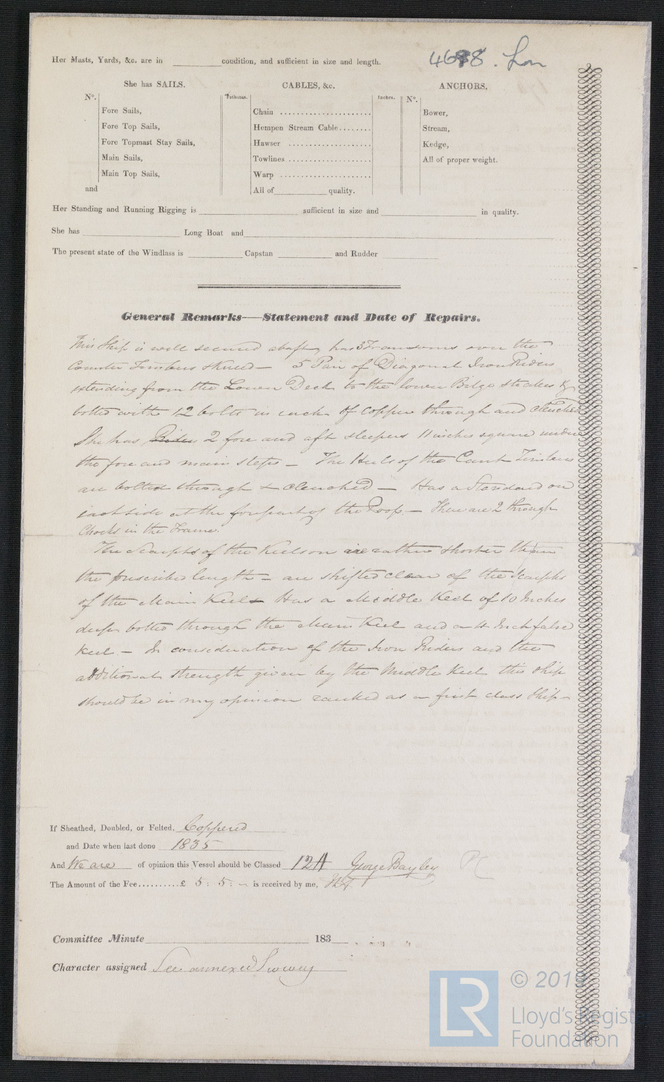 Her Masts, Yards, &c. are in condition, and sufficient in size and length.
4678. Lon
She has SAILS.
CABLES, &c.
ANCHORS,
N°.
Fathoms.
Inches.
N°.
Fore Sails,
Chain
Bower,
Fore Top Sails,
Hempen Stream Cable
Stream,
Fore Topmast Stay Sails,
Hawser
Kedge,
Main Sails,
Towlines
All of proper weight.
Main Top Sails,
Warp
and
All of quality.
Her Standing and Running Rigging is sufficient in size and in quality.
She has Long Boat and
The present state of the Windlass is Capstan and Rudder
General Remarks—Statement and Date of Repairs.
This Ship is well secured abaft, has 5 Transoms over the
Counter Timbers - 5 Pair of Diagonal Iron Riders
extending from the Lower Deck to the lower Bilge strakes &
bolted with 12 bolts in each of Copper through and Clenched
She has 2 fore and aft sleepers 11 inches square under
the fore and main steps - The Heels of the Cant Timbers
are bolted through & clenched - Has a Standard on
each side at the forepart of the Poop - There are 2 through
Chocks in the Frame.
The Scarphs of the Keelson are rather shorter than
the prescribed length - are shifted clear of the Scarphs
of the Main Keel & Has a Middle Keel of 10 Inches
deep bolted through the Main Keel and a 4 Inch false
Keel - In consideration of the Iron Riders and the
additional strength given by the Middle Keel this ship
should be in my opinion ranked as a first class Ship -
If Sheathed, Doubled, or Felted, Coppered
and Date when last done 1835
And We are of opinion this Vessel should be Classed 12 A George Bayley
The Amount of the Fee..........£ 5. 5. - is received by me,
Committee Minute 183
Character assigned See annexed Survey
© 2019
LR
Lloyd's Register
Foundation